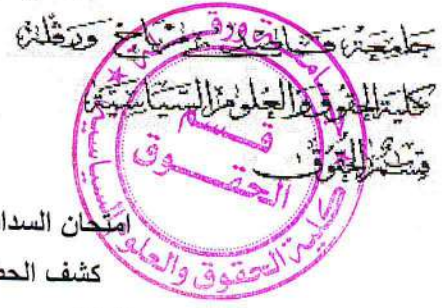 جامعة قاصدي مرباح ورقلة
كلية الحقوق والعلوم السياسية
قسم الحقوق
قسم
الحقوق
كلية الحقوق والعلوم السياسية
امتحان السدا
كشف الحض